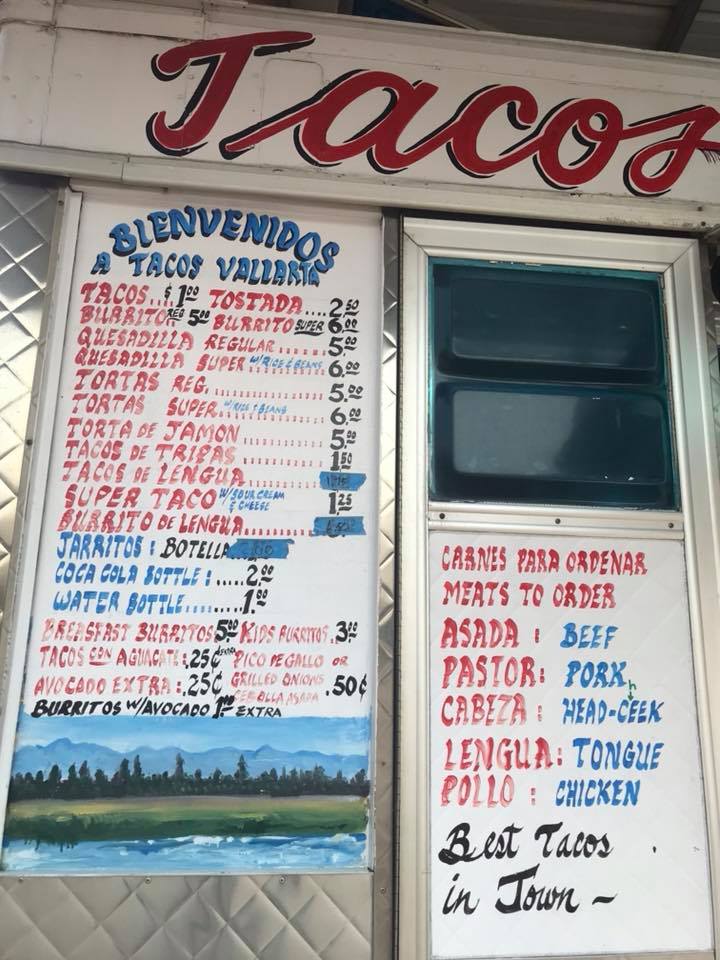 Tacos
BIENVENIDOS
A TACOS VALLARTA
TACOS...$1.00 TOSTADA....2.50
BURRITO REG 5.00 BURRITO SUPER 6.00
QUESADILLA REGULAR........5.00
QUESADILLA SUPER W/RICE & BEANS 6.00
TORTAS REG. ............5.00
TORTAS SUPER. W/RICE & BEANS 6.00
TORTA DE JAMON.........5.00
TACOS DE TRIPAS.........1.50
TACOS DE LENGUA.........
SUPER TACO W/SOUR CREAM & CHEESE 1.25
BURRITO DE LENGUA..........
JARRITOS: BOTELLA
COCA COLA BOTTLE:.....2.00
WATER BOTTLE.......1.00
BREASFAST BURRITOS 5.00 KIDS BURRITOS.3.00
TACOS CON AGUACATE:.25¢ EXTRA PICO DE GALLO OR
AVOCADO EXTRA:.25¢ GRILLED ONIONS .50¢
SEBOLLA ASADA
BURRITOS W/AVOCADO 1.00 EXTRA
CARNES PARA ORDENAR
MEATS TO ORDER
ASADA: BEEF
PASTOR: PORK
CABEZA: HEAD-ChEEK
LENGUA: TONGUE
POLLO: CHICKEN
Best Tacos
in Town ~